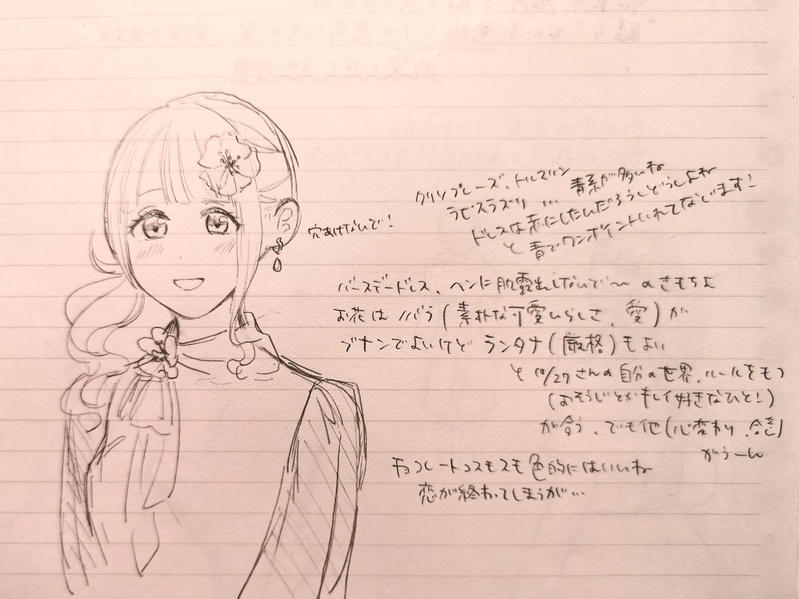 穴あけないで!
クリソプレーズ、トルマリン
ラピスラズリ … 青系が多いね
ドレスは赤にしたいんだろうしどうしよね
と 青でワンポイントいれてなじます!
バースデードレス、ヘンに肌露出しないで〜のきもちよ
お花は ノバラ(素朴な可愛いらしさ、愛)が
ブナンでよいけど ランタナ(厳格)もよい
と 10/27さんの自分の世界、ルールをもつ
(おそうじとかキレイ好きなひと!)
が合う、でも他(心変わり、合意)
がうーん
チョコレートコスモスも色的にはいいね
恋が終わってしまうが…